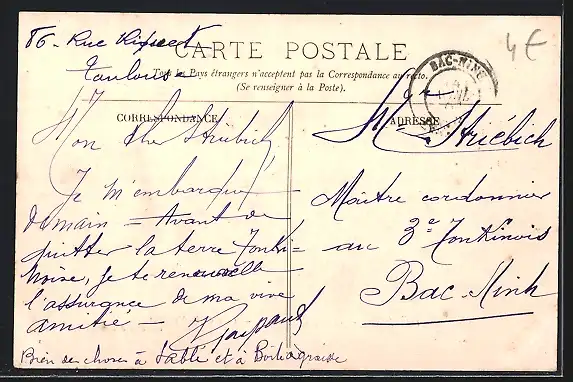 86 - Rue Riquet
Toulouse
4€
CARTE POSTALE
Tous les Pays étrangers n'acceptent pas la Correspondance au recto.
(Se renseigner à la Poste).
BAC-NINH
CORRESPONDANCE
ADRESSE
Mon cher Striébich
Je m'embarque
demain - Avant de
quitter la terre Tonki-
noise, je te renouvelle
l'assurance de ma vive
amitié -
Bien des choses à Sablé et à
Mr Striébich
Maître cordonnier
au 3e Tonkinois
Bac-Ninh